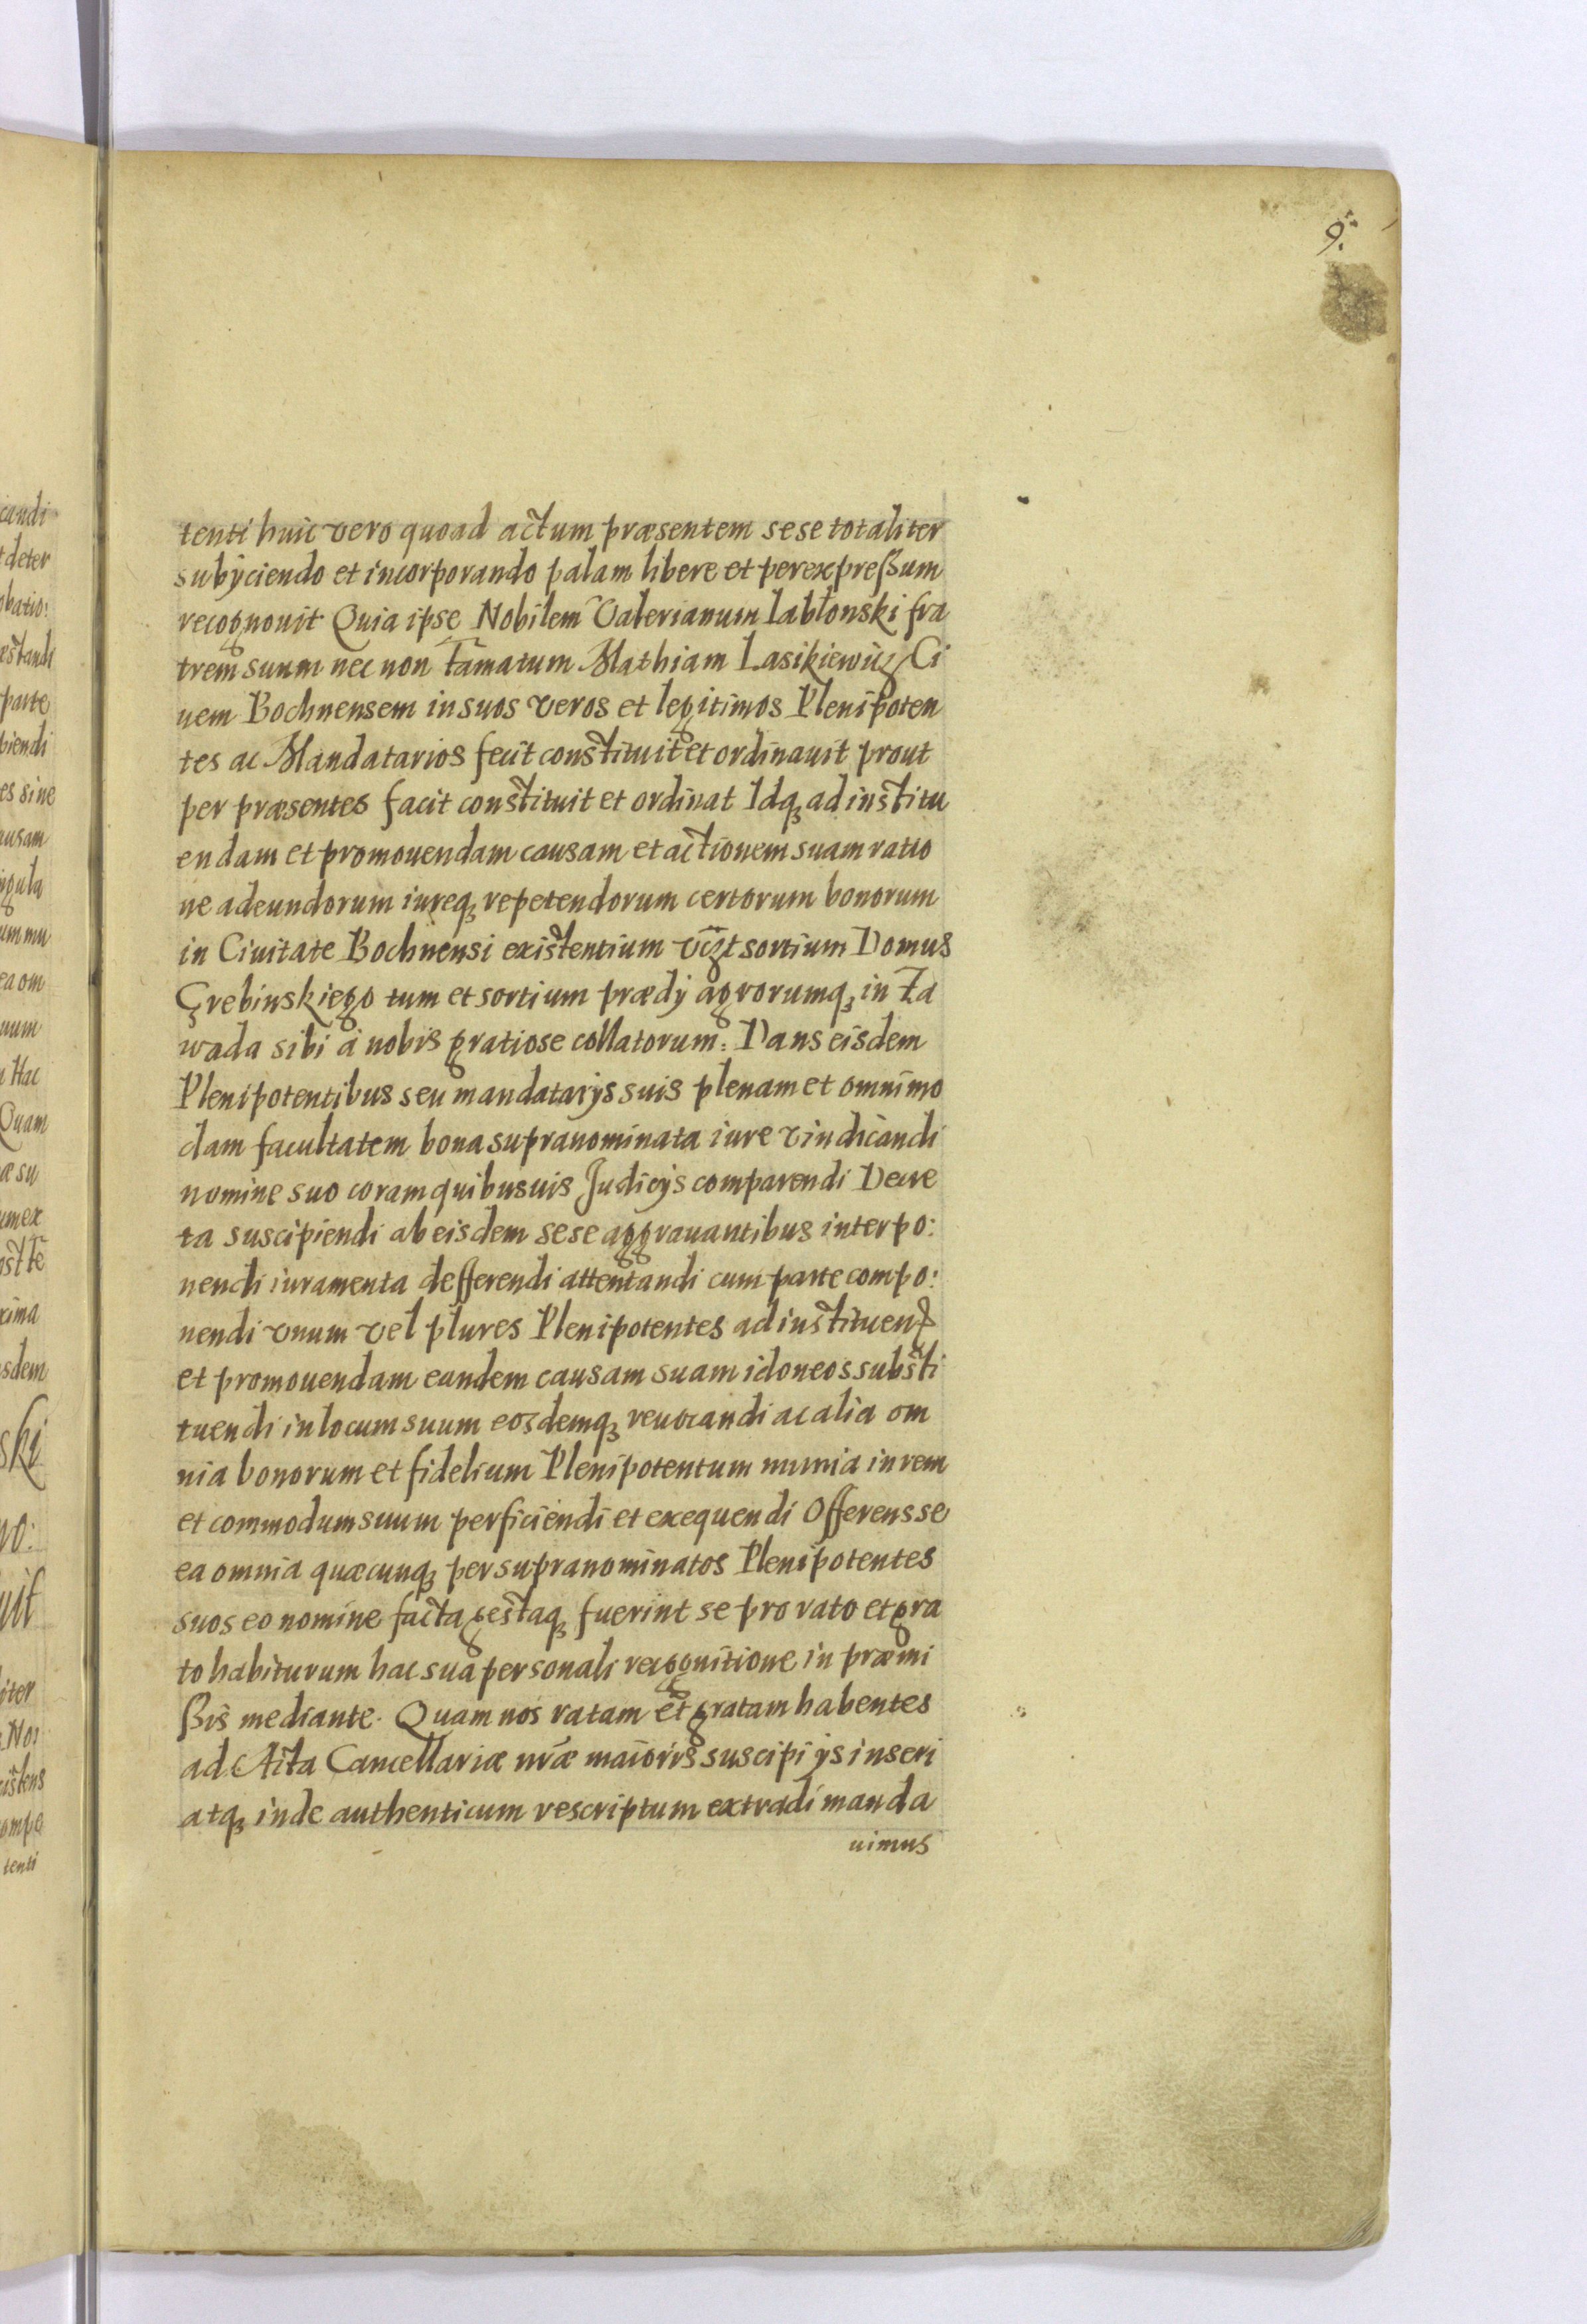 9.
tenti huic vero quoad actum præsentem sese totaliter
subÿciendo et incorporando palam libere et perexpreßum
recognouit Quia ipse Nobilem Valerianum Iabłonski fra
trem suum nec non fãmatum Mathiam Lasikiewicz Ci
uem Bochnensem in suos veros et legitimos Plenipoten
tes ac Mandatarios fecit constituit et ordinauit prout
per præsentes facit constituit et ordinat Idqꝫ ad institu
endam et promouendam causam et actionem suam ratio
ne adeundorum iureqꝫ repetendorum certorum bonorum
in Ciuitate Bochnensi existentium vꝫt sortium Domus
Grebinskiego tum et sortium prædÿ agrorumqꝫ in Za
wada sibi à nobis gratiose collatorum: Dans eisdem
Plenipotentibus seu mandatarÿs suis plenam et omnimo
dam facultatem bona supranominata iure vindicandi
nomine suo coram quibusuis Judicÿs comparendi Decre
ta suscipiendi ab eisdem sese aggrauantibus interpo:
nendi iuramenta defferendi attentandi cum parte compo:
nendi vnum vel plures Plenipotentes ad instituend
et promouendam eandem causam suam idoneos substi
tuendi in locum suum eosdemqꝫ reuocandi ac alia om
nia bonorum et fidelium Plenipotentum munia in rem
et commodum suum perficiendi et exequendi Offerens se
ea omnia quæcunqꝫ per supranominatos Plenipotentes
suos eo nomine facta gestaqꝫ fuerint se pro rato et gra
to habiturum hac sua personali recognitione in præmi
ßis mediante. Quam nos ratam et gratam habentes
ad Acta Cancellariæ nræ maioris suscipi ÿs inseri
atqꝫ inde authenticum rescriptum extradi manda
uimus